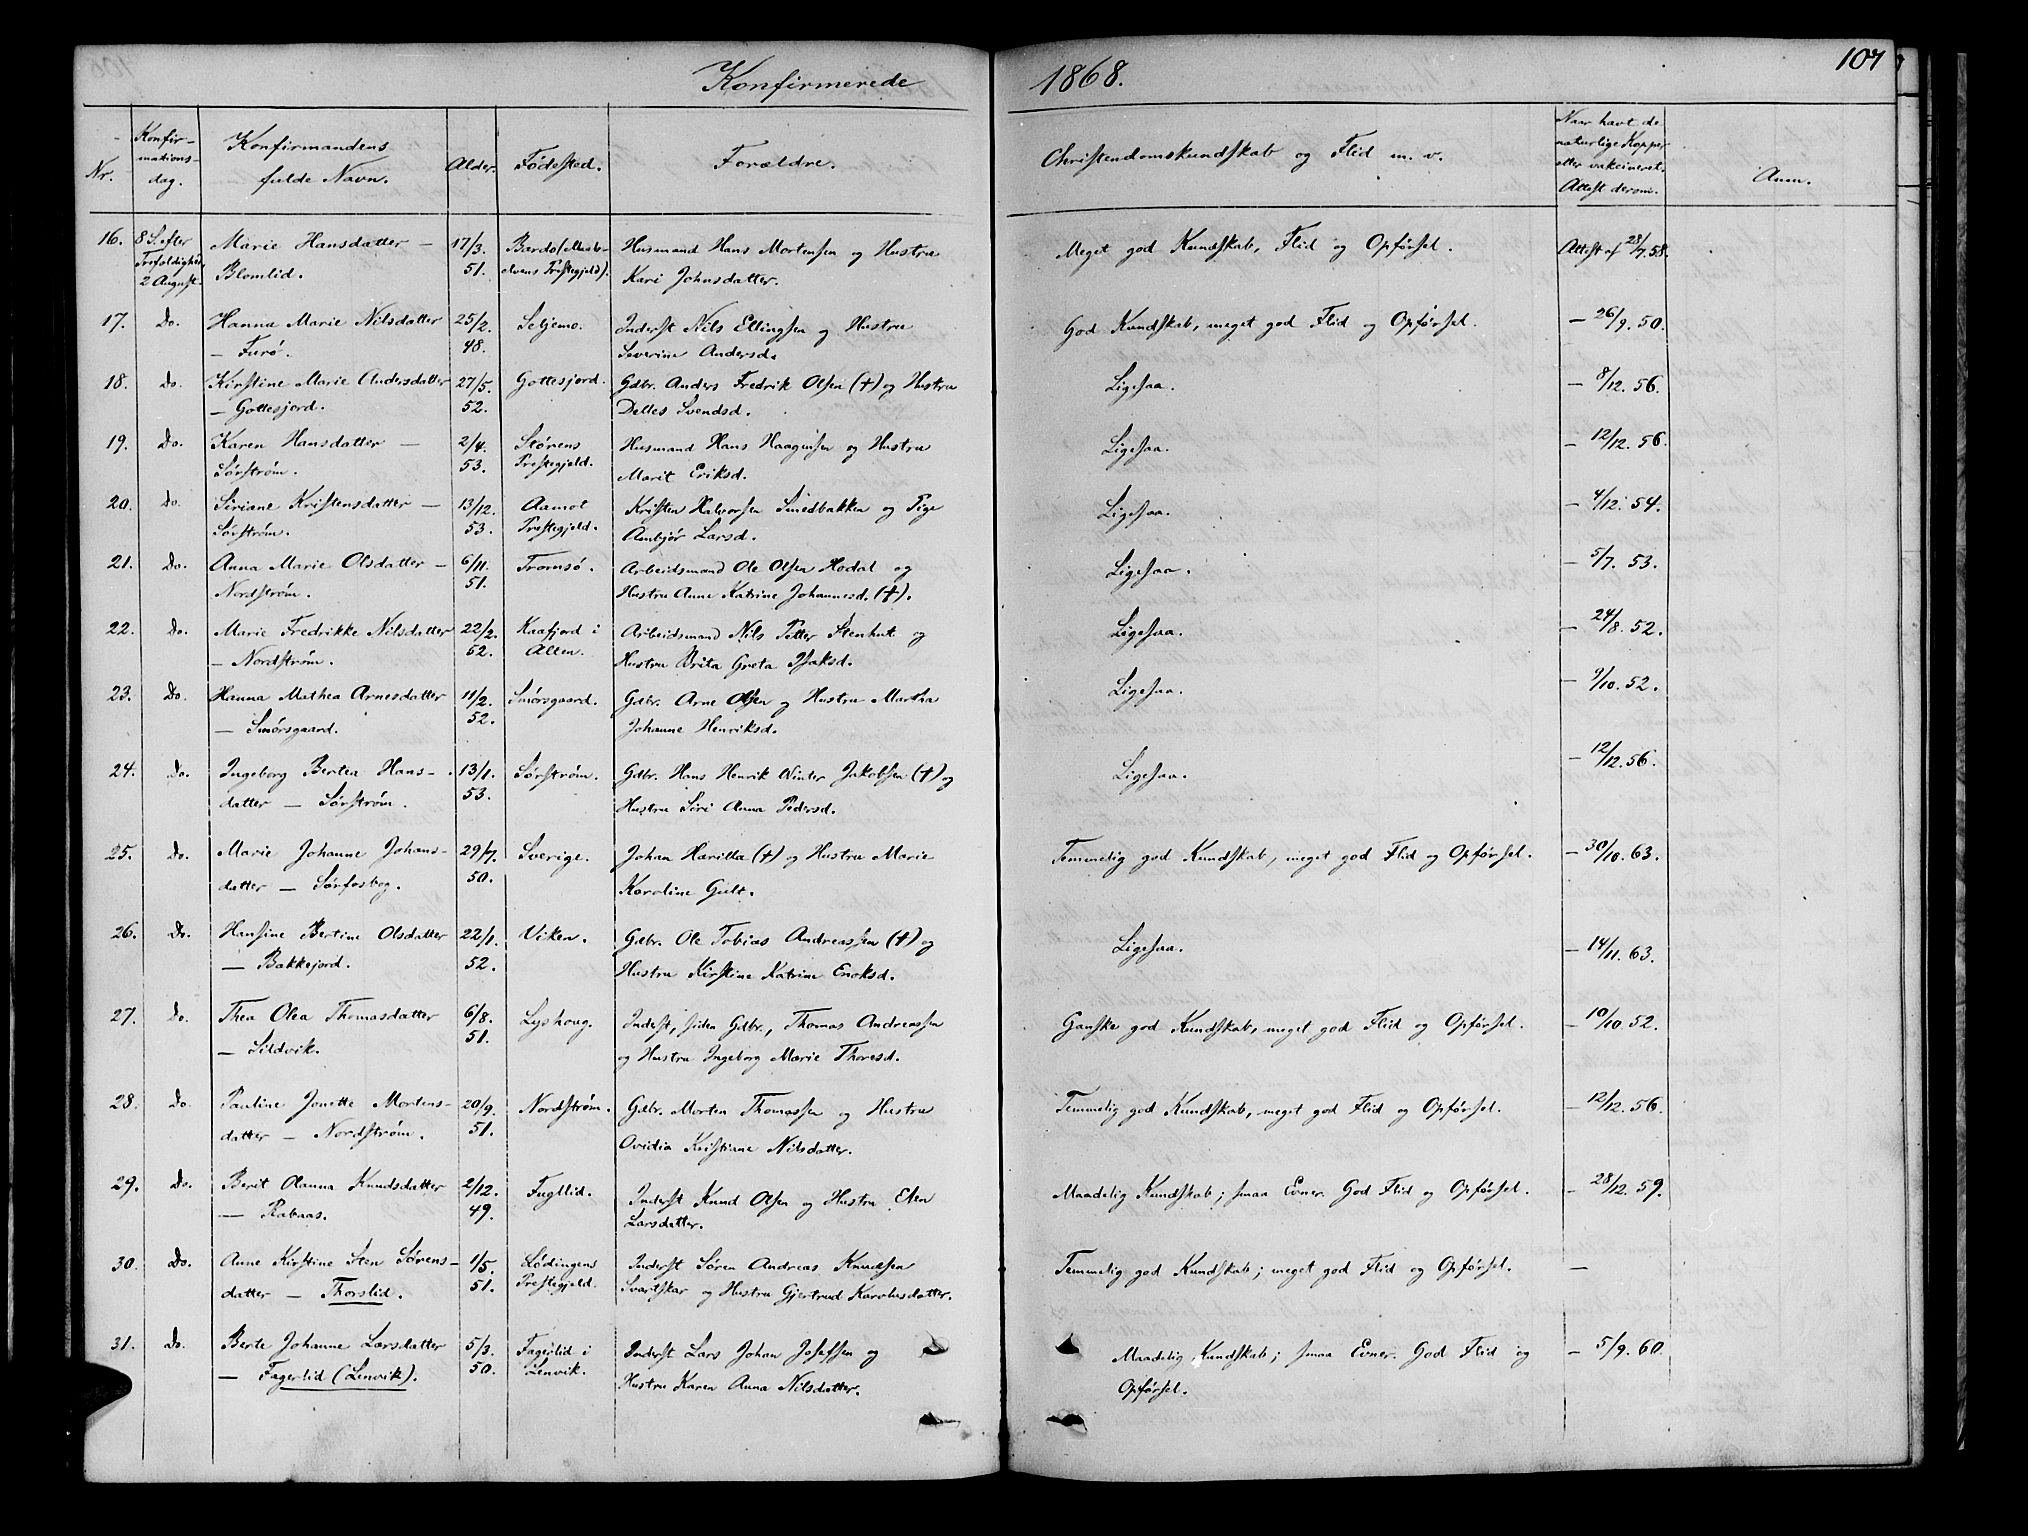 Konfirmerede 1868. 107
Nr. Konfirmationsdag. Konfirmandens fulde Navn. Alder. Fødested. Forældre. Christendomskundskab og Flid m. v. Naar havt de naturlige Kopper eller vakcineret. Attest derom. Anm.
16. 8 S. efter Trefoldighed, 2 August. Marie Hansdatter — 17/3. Bardo Husmand Hans Mortensen og Hustru Meget god Kundskab, Flid og Opførsel. Attest af 28/7. 58.
Blomlid. 51. Prestegjeld). Kari Johnsdatter.
17. Do. Hanna Marie Nilsdatter 25/2. Seljemo. Inderst Nils Ellingsen og Hustru God Kundskab, meget god Flid og Opførsel. — 26/9. 50.
— Furø. 48. Severine Andersd.
18. Do. Kirstine Marie Andersdatter 27/5. Gottesjord. Gdbr. Anders Fredrik Olsen (†) og Hustru Ligesaa. — 8/12. 56.
— Gottesjord. 52. Delles Svendsd.
19. Do. Karen Hansdatter — 2/4. Størens Husmand Hans Haagensen og Hustru Ligesaa. — 12/12. 56.
Sørstrøm. 53. Prestegjeld. Marit Eriksd.
20. Do. Siriane Kristensdatter — 13/12. Aamot Kristen Halvorsen Smedbakken og Pige Ligesaa. — 4/12. 54.
Sørstrøm. 53. Prestegjeld. Ambjør Larsd.
21. Do. Anna Marie Olsdatter — 6/11. Tromsø. Arbeidsmand Ole Olsen Hodal og Ligesaa. — 5/7. 53.
Nordstrøm. 51. Hustru Anne Katrine Johannesd. (†).
22. Do. Marie Fredrikke Nilsdatter 22/2. Kaafjord i Arbeidsmand Nils Petter Stenhuk og Ligesaa. — 24/8. 52.
— Nordstrøm. 52. Alten. Hustru Brita Greta Isaksd.
23. Do. Hanna Mathea Arnesdatter 11/2. Smørsgaard. Gdbr. Arne Olsen og Hustru Martha Ligesaa. — 9/10. 52.
— Smørsgaard. 52. Johanne Henriksd.
24. Do. Ingeborg Bertea Hans- 13/1. Sørstrøm. Gdbr. Hans Henrik Winter Jakobsen (†) og Ligesaa. — 12/12. 56.
datter — Sørstrøm. 53. Hustru Siri Anna Pedersd.
25. Do. Marie Johanne Johans- 29/7. Sverige. Johan Harilla (†) og Hustru Marie Temmelig god Kundskab, meget god Flid og Opførsel. — 30/10. 63.
datter — Sørfosbog. 50. Karoline Gult.
26. Do. Hansine Bertine Olsdatter 22/1. Viken. Gdbr. Ole Tobias Andreassen (†) og Ligesaa. — 14/11. 63.
— Bakkejord. 52. Hustru Kirstine Katrine Enoksd.
27. Do. Thea Olea Thomasdatter 6/8. Lyshoug. Inderst, siden Gdbr., Thomas Andreassen Ganske god Kundskab, meget god Flid og Opførsel. — 10/10. 52.
— Sildvik. 51. og Hustru Ingeborg Marie Thoresd.
28. Do. Pauline Jonette Mortens- 20/9. Nordstrøm. Gdbr. Morten Thomassen og Hustru Temmelig god Kundskab, meget god Flid og Opførsel. — 12/12. 56.
datter — Nordstrøm. 51. Ovidia Kristiane Nilsdatter.
29. Do. Berit Olanna Knudsdatter 2/12. Fugllid. Inderst Knud Olsen og Hustru Elen Maadelig Kundskab; smaa Evner. God Flid og Opførsel. — 28/12. 59.
— Rabaas. 49. Larsdatter.
30. Do. Anne Kirstine Sten Sørens- 1/5. Lødingens Inderst Søren Andreas Knudsen Temmelig god Kundskab; meget god Flid og Opførsel. —
datter — Thorslid. 51. Prestegjeld. Svartskar og Hustru Gjertrud Karolusdatter.
31. Do. Berte Johanne Larsdatter 5/3. Fagerlid i Inderst Lars Johan Josefsen og Maadelig Kundskab; smaa Evner. God Flid og — 5/9. 60.
— Fagerlid (Lenvik). 50. Lenvik. Hustru Karen Anna Nilsdatter. Opførsel.